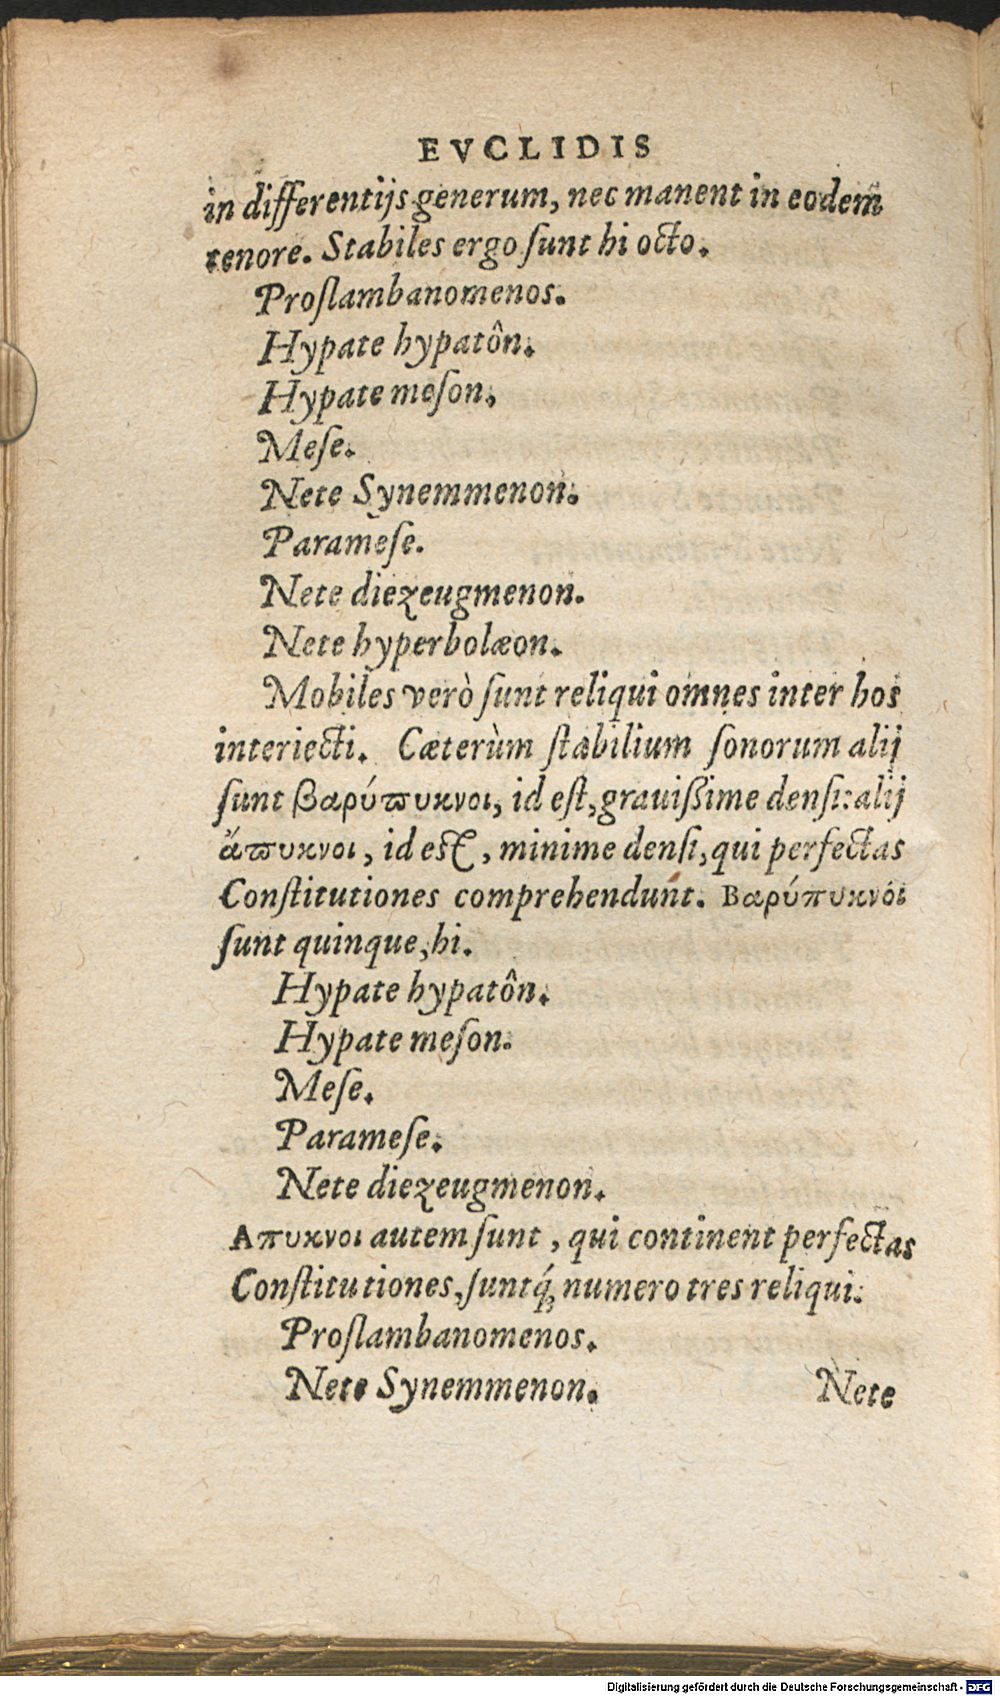 EVCLIDIS
in differentijs generum, nec manent in eodem
tenore. Stabiles ergo ſunt hi octo.
Proſlambanomenos.
Hypate hypatôn.
Hypate meſon.
Meſe.
Nete Synemmenon.
Parameſe.
Nete diezeugmenon.
Nete hyperbolæon.
Mobiles verò ſunt reliqui omnes inter hos
interiecti. Cæterùm ſtabilium ſonorum alij
ſunt βαρύϖυκνοι, id eſt, grauiſsime denſi: alij
ἄϖυκνοι, id eſt, minime denſi, qui perfectas
Conſtitutiones comprehendunt. Βαρύπυκνοι
ſunt quinque, hi.
Hypate hypatôn.
Hypate meſon.
Meſe.
Parameſe.
Nete diezeugmenon.
Απυκνοι autem ſunt, qui continent perfectas
Conſtitutiones, ſuntq́; numero tres reliqui.
Proſlambanomenos.
Nete Synemmenon.
Nete
Digitalisierung gefördert durch die Deutsche Forschungsgemeinschaft - DFG